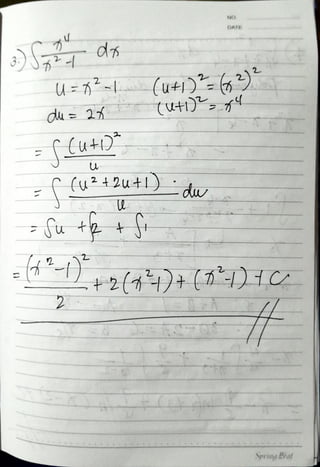 NO.
DATE
3.) ∫ x⁴/(x² - 1) dx
u = x² - 1    (u+1)² = (x²)²
du = 2x    (u+1)² = x⁴
= ∫ (u+1)²/u
= ∫ (u² + 2u + 1)/u · du
= ∫u + ∫2 + ∫1
= (x² - 1)²/2 + 2(x² - 1) + (x² - 1) + C